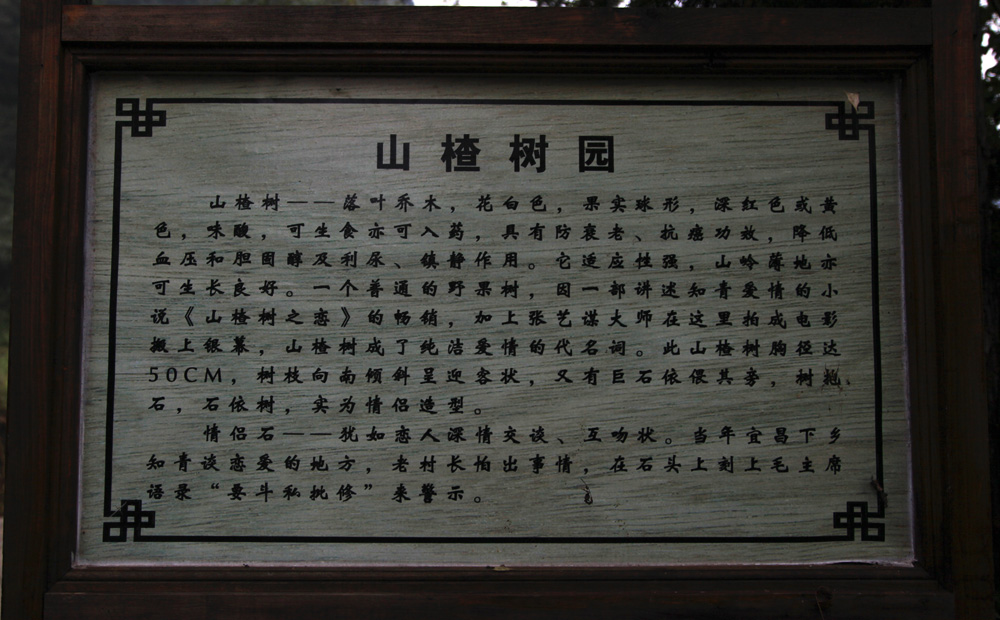 山楂树园
山楂树——落叶乔木，花白色，果实球形，深红色或黄
色，味酸，可生食亦可入药，具有防衰老、抗癌功效，降低
血压和胆固醇及利尿、镇静作用。它适应性强，山岭薄地亦
可生长良好。一个普通的野果树，因一部讲述知青爱情的小
说《山楂树之恋》的畅销，加上张艺谋大师在这里拍成电影
搬上银幕，山楂树成了纯洁爱情的代名词。此山楂树胸径达
50CM，树枝向南倾斜呈迎客状，又有巨石依偎其旁，树抱
石，石依树，实为情侣造型。
情侣石——犹如恋人深情交谈、互吻状。当年宜昌下乡
知青谈恋爱的地方，老村长怕出事情，在石头上刻上毛主席
语录“要斗私批修”来警示。